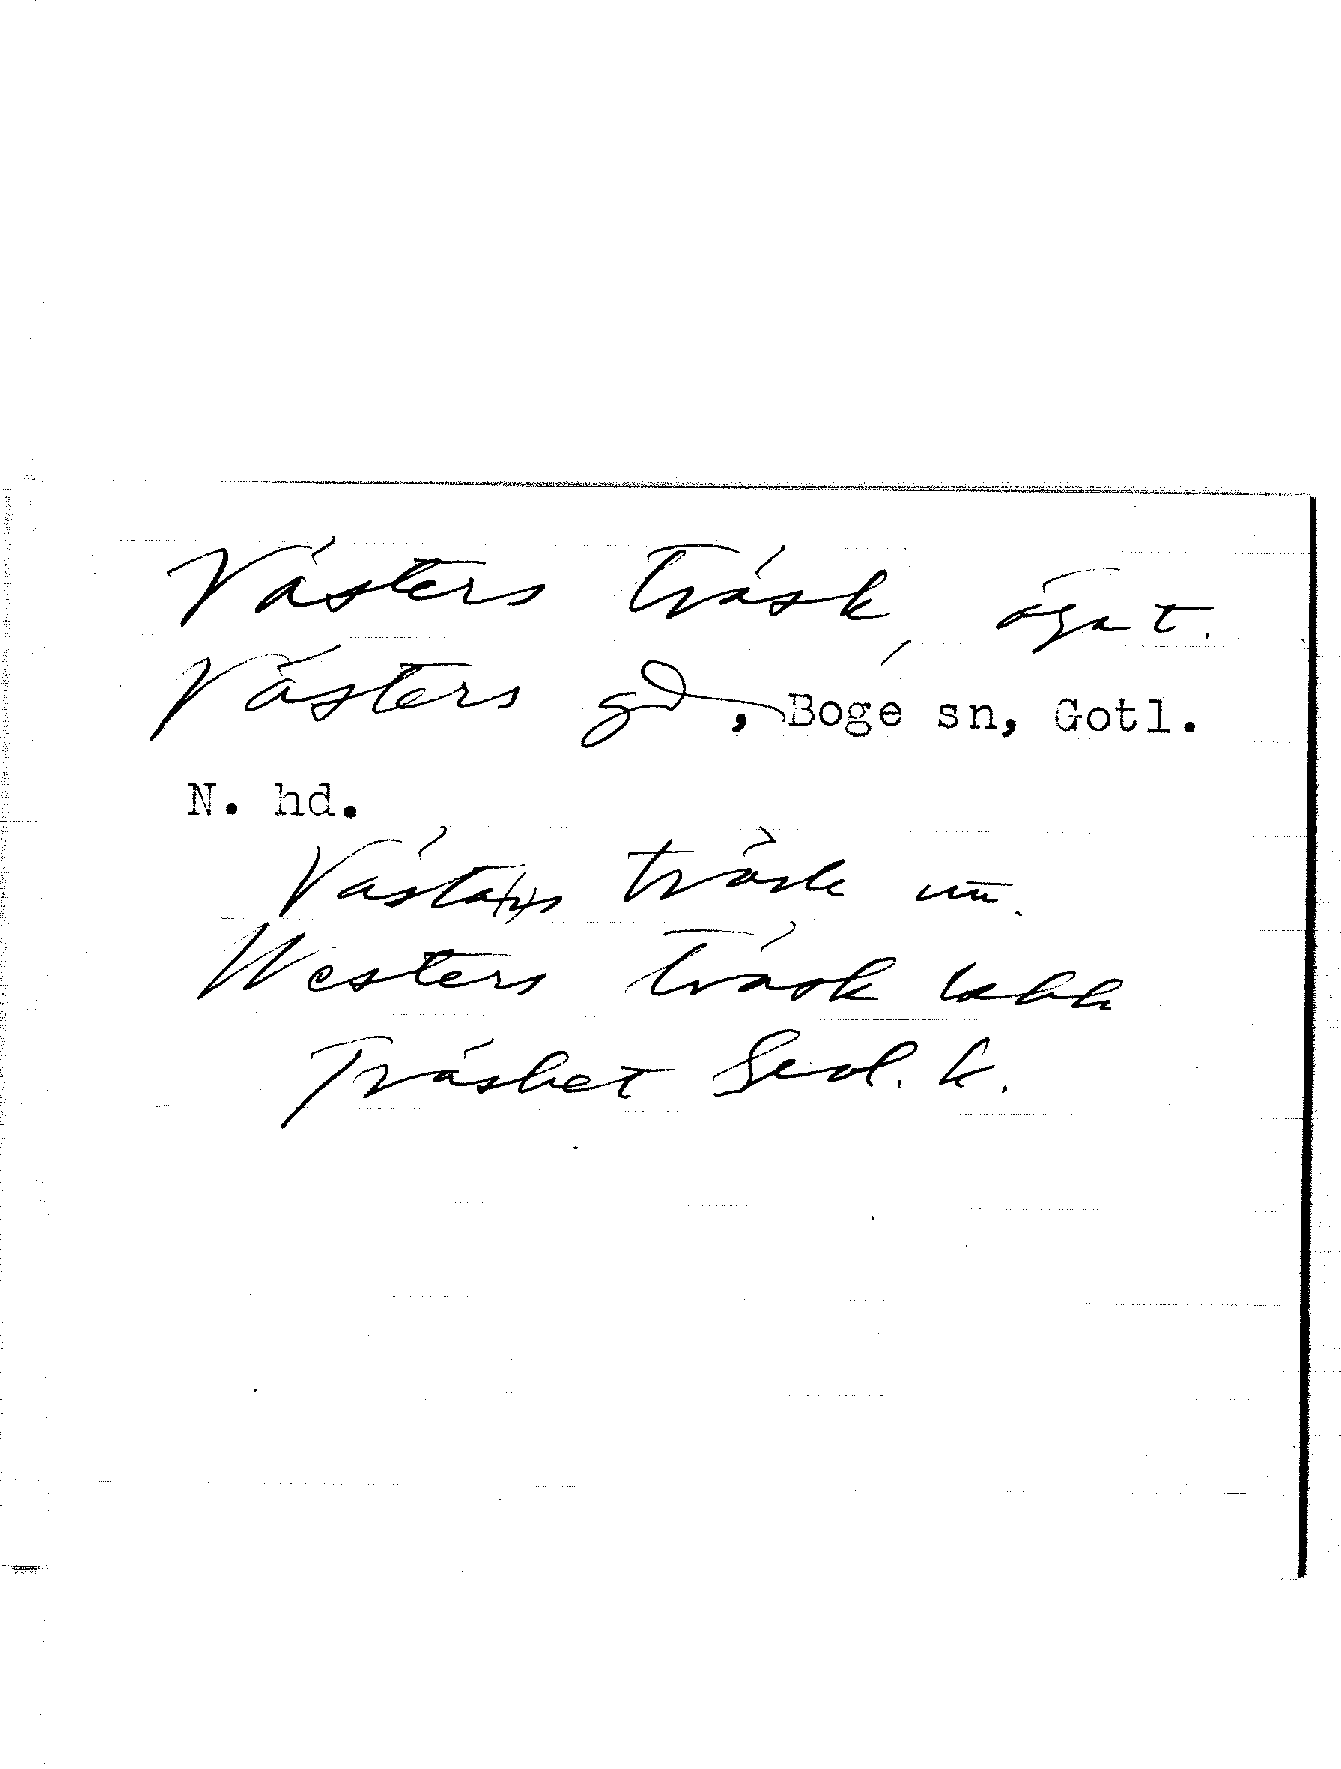 Västers träsk, ägat.
Västers gd, Boge sn, Gotl.
N. hd.
Västa(r)s träsk
Westers träsk
Träsket Geol. k.